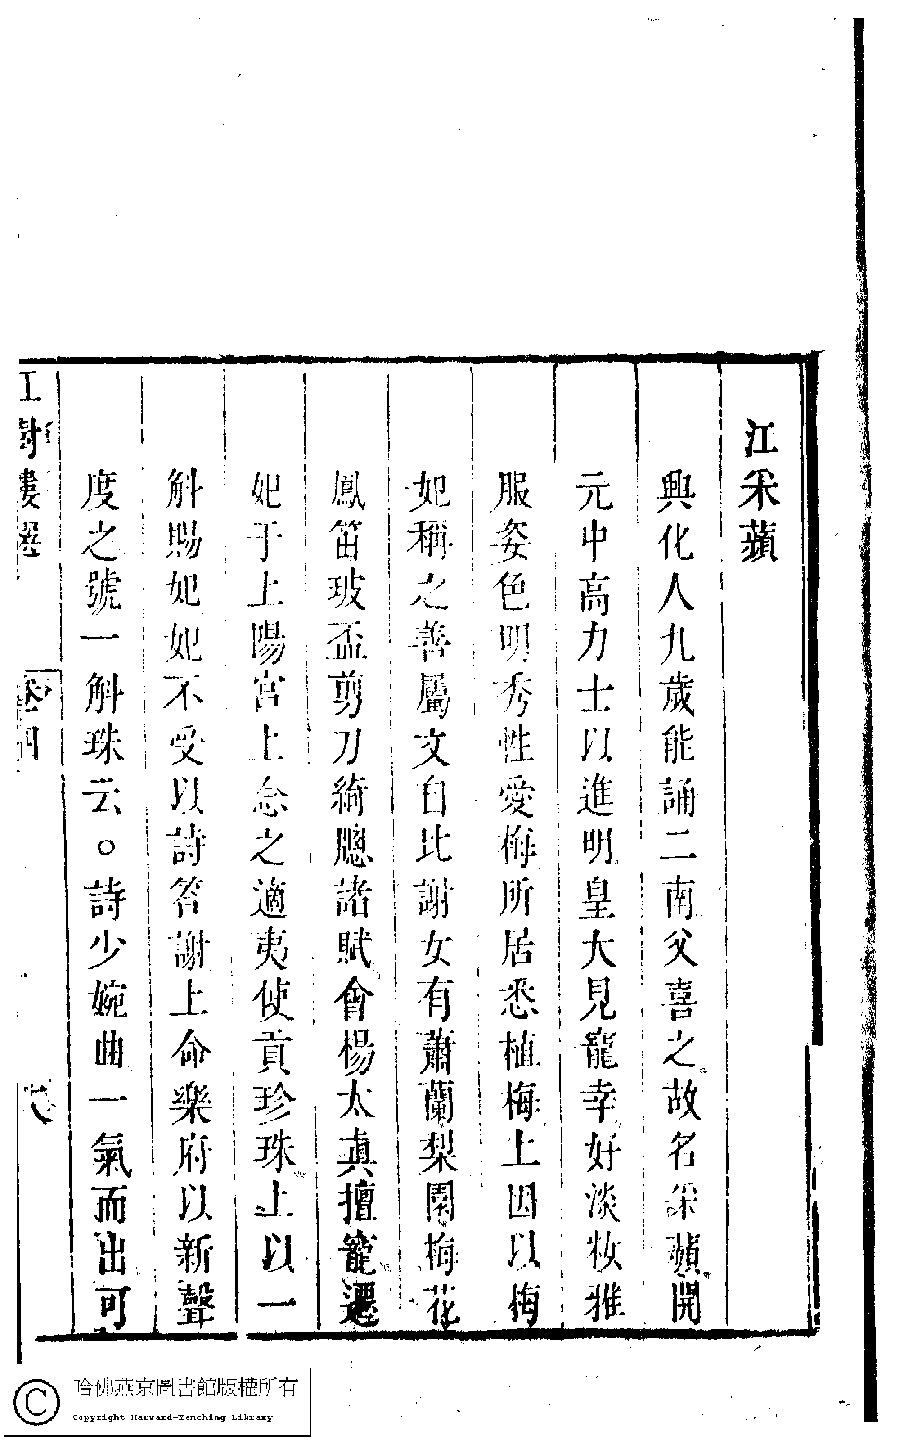 江采蘋
興化人九歲能誦二南父喜之故名采蘋開
元中高力士以進明皇大見寵幸好淡妝雅
服姿色明秀性愛梅所居悉植梅上因以梅
妃稱之善屬文自比謝女有蕭蘭梨園梅花
鳳笛玻盃剪刀綺牕諸賦會楊太真擅寵遷
妃于上陽宮上念之適夷使貢珍珠上以一
斛賜妃妃不受以詩答謝上命樂府以新聲
度之號一斛珠云。詩少婉曲一氣而出可
卷四
哈佛燕京圖書館版權所有
Copyright Harvard-Yenching Library